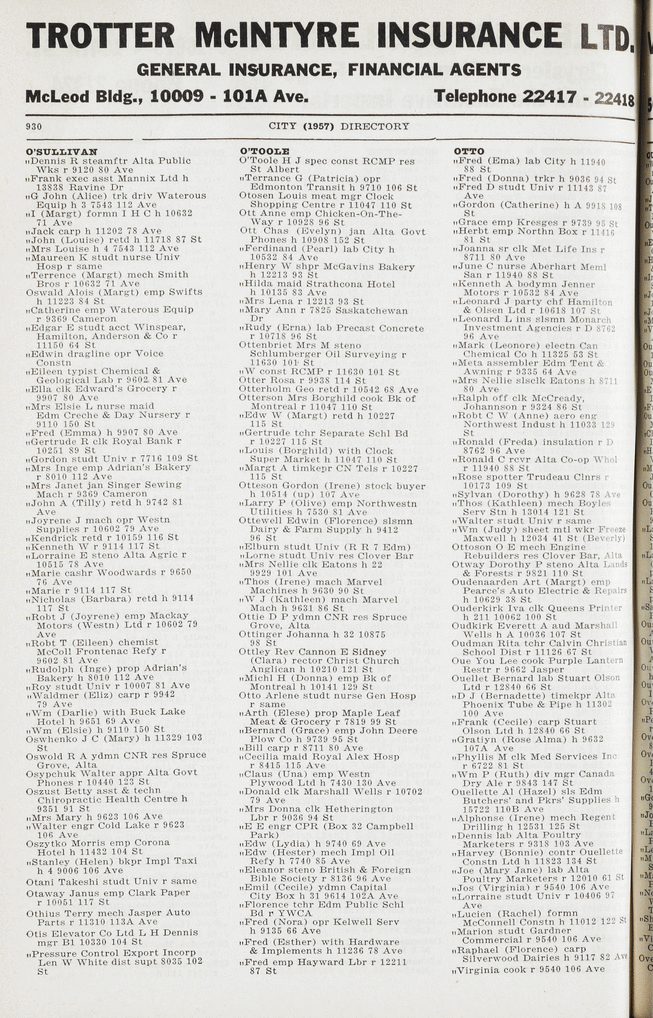 TROTTER McINTYRE INSURANCE LTD.
GENERAL INSURANCE, FINANCIAL AGENTS
McLeod Bldg., 10009 - 101A Ave. Telephone 22417 - 22418
930 CITY (1957) DIRECTORY
O'SULLIVAN
„Dennis R steamftr Alta Public
Wks r 9120 80 Ave
„Frank exec asst Mannix Ltd h
13838 Ravine Dr
„G John (Alice) trk driv Waterous
Equip h 3 7543 112 Ave
„I (Margt) formn I H C h 10632
71 Ave
„Jack carp h 11202 78 Ave
„John (Louise) retd h 11718 87 St
„Mrs Louise h 4 7543 112 Ave
„Maureen K studt nurse Univ
Hosp r same
„Terrence (Margt) mech Smith
Bros r 10632 71 Ave
Oswald Alois (Margt) emp Swifts
h 11223 84 St
„Catherine emp Waterous Equip
r 9369 Cameron
„Edgar E studt acct Winspear,
Hamilton, Anderson & Co r
11150 64 St
„Edwin dragline opr Voice
Constn
„Eileen typist Chemical &
Geological Lab r 9602 81 Ave
„Ella clk Edward's Grocery r
9907 80 Ave
„Mrs Elsie L nurse maid
Edm Creche & Day Nursery r
9110 150 St
„Fred (Emma) h 9907 80 Ave
„Gertrude R clk Royal Bank r
10251 89 St
„Gordon studt Univ r 7716 109 St
„Mrs Inge emp Adrian's Bakery
r 8010 112 Ave
„Mrs Janet jan Singer Sewing
Mach r 9369 Cameron
„John A (Tilly) retd h 9742 81
Ave
„Joyrene J mach opr Westn
Supplies r 10602 79 Ave
„Kendrick retd r 10159 116 St
„Kenneth W r 9114 117 St
„Lorraine E steno Alta Agric r
10515 78 Ave
„Marie cashr Woodwards r 9650
76 Ave
„Marie r 9114 117 St
„Nicholas (Barbara) retd h 9114
117 St
„Robt J (Joyrene) emp Mackay
Motors (Westn) Ltd r 10602 79
Ave
„Robt T (Eileen) chemist
McColl Frontenac Refy r
9602 81 Ave
„Rudolph (Inge) prop Adrian's
Bakery h 8010 112 Ave
„Roy studt Univ r 10007 81 Ave
„Waldmer (Eliz) carp r 9942
79 Ave
„Wm (Darlie) with Buck Lake
Hotel h 9651 69 Ave
„Wm (Elsie) h 9110 150 St
Oswhenko J C (Mary) h 11329 103
St
Oswold R A ydmn CNR res Spruce
Grove, Alta
Osypchuk Walter appr Alta Govt
Phones r 10440 123 St
Oszust Betty asst & techn
Chiropractic Health Centre h
9351 91 St
„Mrs Mary h 9623 106 Ave
„Walter engr Cold Lake r 9623
106 Ave
Oszytko Morris emp Corona
Hotel h 11432 104 St
„Stanley (Helen) bkpr Impl Taxi
h 4 9006 106 Ave
Otani Takeshi studt Univ r same
Otaway Janus emp Clark Paper
r 10051 117 St
Othius Terry mech Jasper Auto
Parts r 11310 113A Ave
Otis Elevator Co Ltd L H Dennis
mgr B1 10330 104 St
„Pressure Control Export Incorp
Len W White dist supt 8035 102
St
O'TOOLE
O'Toole H J spec const RCMP res
St Albert
„Terrance G (Patricia) opr
Edmonton Transit h 9710 106 St
Otosen Louis meat mgr Clock
Shopping Centre r 11047 110 St
Ott Anne emp Chicken-On-The-
Way r 10928 96 St
Ott Chas (Evelyn) jan Alta Govt
Phones h 10908 152 St
„Ferdinand (Pearl) lab City h
10532 84 Ave
„Henry W shpr McGavins Bakery
h 12213 93 St
„Hilda maid Strathcona Hotel
h 10135 83 Ave
„Mrs Lena r 12213 93 St
„Mary Ann r 7825 Saskatchewan
Dr
„Rudy (Erna) lab Precast Concrete
r 10718 96 St
Ottenbriet Mrs M steno
Schlumberger Oil Surveying r
11630 101 St
„W const RCMP r 11630 101 St
Otter Rosa r 9938 114 St
Otterholm Geo retd r 10542 68 Ave
Otterson Mrs Borghild cook Bk of
Montreal r 11047 110 St
„Edw W (Margt) retd h 10227
115 St
„Gertrude tchr Separate Schl Bd
r 10227 115 St
„Louis (Borghild) with Clock
Super Market h 11047 110 St
„Margt A timkepr CN Tels r 10227
115 St
Otteson Gordon (Irene) stock buyer
h 10514 (up) 107 Ave
„Larry P (Olive) emp Northwestn
Utilities h 7530 81 Ave
Ottewell Edwin (Florence) slsmn
Dairy & Farm Supply h 9412
96 St
„Elburn studt Univ (R R 7 Edm)
„Lorne studt Univ res Clover Bar
„Mrs Nellie clk Eatons h 22
9929 101 Ave
„Thos (Irene) mach Marvel
Machines h 9630 90 St
„W J (Kathleen) mach Marvel
Mach h 9631 86 St
Ottie D P ydmn CNR res Spruce
Grove, Alta
Ottinger Johanna h 32 10875
98 St
Ottley Rev Cannon E Sidney
(Clara) rector Christ Church
Anglican h 10210 121 St
„Michl H (Donna) emp Bk of
Montreal h 10141 129 St
Otto Arlene studt nurse Gen Hosp
r same
„Arth (Elese) prop Maple Leaf
Meat & Grocery r 7819 99 St
„Bernard (Grace) emp John Deere
Plow Co h 9739 95 St
„Bill carp r 8711 80 Ave
„Cecilia maid Royal Alex Hosp
r 8415 115 Ave
„Claus (Una) emp Westn
Plywood Ltd h 7430 130 Ave
„Donald clk Marshall Wells r 10702
79 Ave
„Mrs Donna clk Hetherington
Lbr r 9036 94 St
„E E engr CPR (Box 32 Campbell
Park)
„Edw (Lydia) h 9740 69 Ave
„Edw (Hester) mech Impl Oil
Refy h 7740 85 Ave
„Eleanor steno British & Foreign
Bible Society r 8136 96 St
„Emil (Cecile) ydmn Capital
City Box h 31 9614 102A Ave
„Florence tchr Edm Public Schl
Bd r YWCA
„Fred (Nora) opr Kelwell Serv
h 9135 66 Ave
„Fred (Esther) with Hardware
& Implements h 11236 78 Ave
„Fred emp Hayward Lbr r 12211
87 St
OTTO
„Fred (Ema) lab City h 11940
88 St
„Fred (Donna) trkr h 9036 94 St
„Fred D studt Univ r 11143 87
Ave
„Gordon (Catherine) h A 9918 108
St
„Grace emp Kresges r 9739 95 St
„Herbt emp Northn Box r 11416
81 St
„Joanna sr clk Met Life Ins r
8711 80 Ave
„June C nurse Aberhart Meml
San r 11940 88 St
„Kenneth A bodymn Jenner
Motors r 10532 84 Ave
„Leonard J party chf Hamilton
& Olsen Ltd r 10618 107 St
„Leonard L ins slsmn Monarch
Investment Agencies r D 8762
96 Ave
„Mark (Leonore) electn Can
Chemical Co h 11325 53 St
„Meta assembler Edm Tent &
Awning r 9335 64 Ave
„Mrs Nellie slsclk Eatons h 8711
80 Ave
„Ralph off clk McCready,
Johannson r 9324 86 St
„Robt C W (Anne) aero eng
Northwest Indust h 11033 129
St
„Ronald (Freda) insulation r D
8762 96 Ave
„Ronald C rcvr Alta Co-op Whol
r 11940 88 St
„Rose spotter Trudeau Clnrs r
10173 109 St
„Sylvan (Dorothy) h 9628 78 Ave
„Thos (Kathleen) mech Boyles
Serv Stn h 13014 121 St
„Walter studt Univ r same
„Wm (Judy) sheet mtl wkr Freeze
Maxwell h 12034 41 St (Beverly)
Ottoson O E mech Engine
Rebuilders res Clover Bar, Alta
Otway Dorothy P steno Alta Lands
& Forests r 9821 110 St
Oudenaarden Art (Margt) emp
Pearce's Auto Electric & Repairs
h 10629 38 St
Ouderkirk Iva clk Queens Printer
h 211 10062 100 St
Oudkirk Everett A aud Marshall
Wells h A 10036 107 St
Oudman Rita tchr Calvin Christian
School Dist r 11126 67 St
Oue You Lee cook Purple Lantern
Restr r 9662 Jasper
Ouellet Bernard lab Stuart Olson
Ltd r 12840 66 St
„D J (Bernadette) timekpr Alta
Phoenix Tube & Pipe h 11302
100 Ave
„Frank (Cecile) carp Stuart
Olson Ltd h 12840 66 St
„Gratiyn (Rose Alma) h 9632
107A Ave
„Phyllis M clk Med Services Inc
r 6722 81 St
„Wm P (Ruth) div mgr Canada
Dry Ale r 9843 147 St
Ouellette Al (Hazel) sls Edm
Butchers' and Pkrs' Supplies h
15722 110B Ave
„Alphonse (Irene) mech Regent
Drilling h 12531 125 St
„Dennis lab Alta Poultry
Marketers r 9318 103 Ave
„Harvey (Bonnie) contr Ouellette
Constn Ltd h 11823 134 St
„Joe (Mary Jane) lab Alta
Poultry Marketers r 12010 61 St
„Jos (Virginia) r 9540 106 Ave
„Lorraine studt Univ r 10406 97
Ave
„Lucien (Rachel) formn
McConnell Constn h 11012 122 St
„Marion studt Gardner
Commercial r 9540 106 Ave
„Raphael (Florence) carp
Silverwood Dairies h 9117 82 Ave
„Virginia cook r 9540 106 Ave